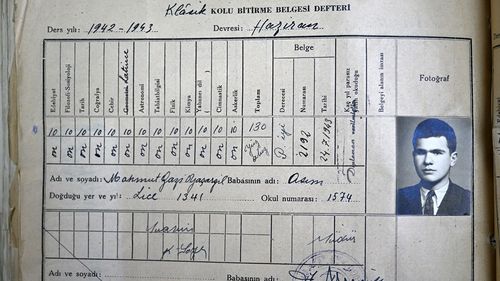 Klâsik KOLU BİTİRME BELGESİ DEFTERİ
Ders yılı: 1942-1943 Devresi: Haziran
Belge
Edebiyat
Filozofi-Sosyoloji
Tarih
Coğrafya
Cebir
Latince
Astronomi
Tabiatbilgisi
Fizik
Kimya
Yabancı dil (
Cimnastik
Askerlik
Toplam
Derecesi
Numarası
Tarihi
Belgeyi alanın imzası
Fotoğraf
10 10 10 10 10 10 10 10 10 10 10 10 10 130
on on on on on on on on on on on on on Yüz otuz
P. iyi
2192
24.7.1943
Adı ve soyadı: Mahmut Gazi Yaşargil Babasının adı: Asım
Doğduğu yer ve yıl: Lice 1341 Okul numarası: 1574
Muavin Müdür
Adı ve soyadı: Babasının adı: